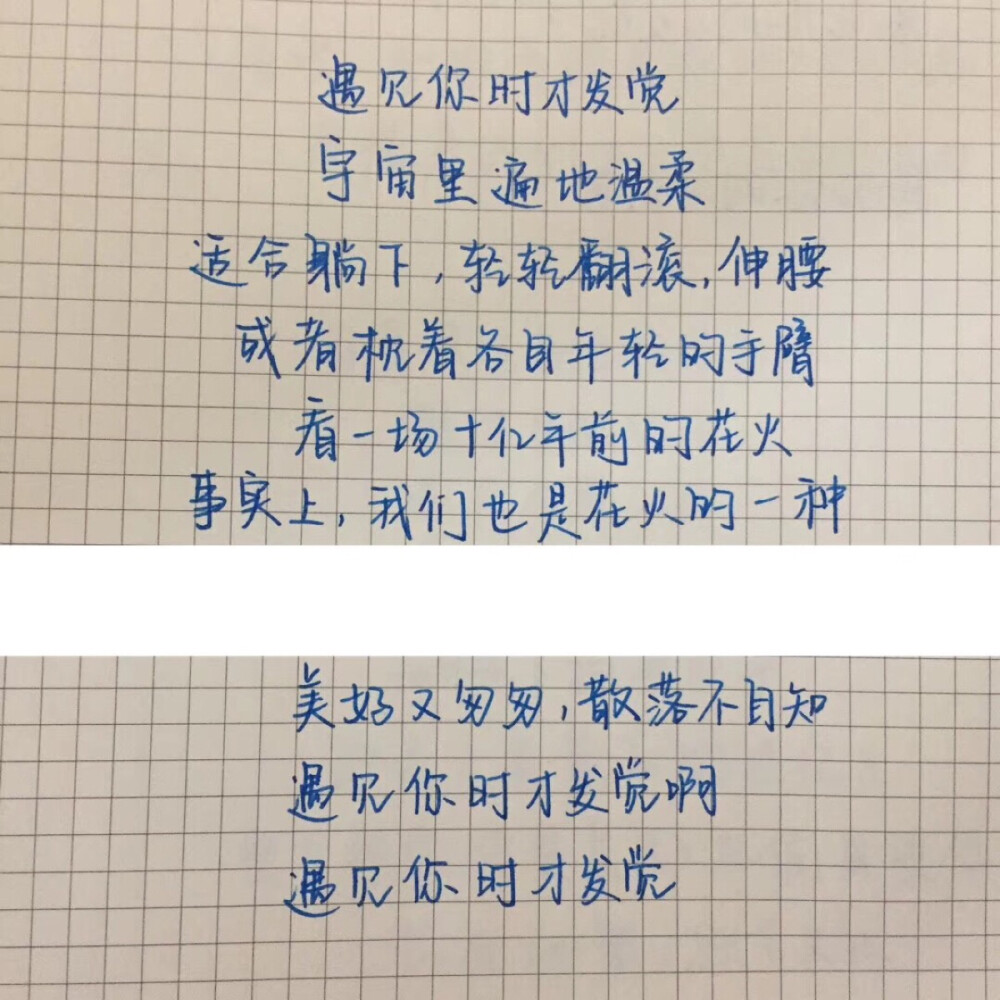 遇见你时才发觉
宇宙里遍地温柔
适合躺下,轻轻翻滚,伸腰
或者枕着各自年轻的手臂
看一场十亿年前的花火
事实上,我们也是花火的一种
美好又匆匆,散落不自知
遇见你时才发觉啊
遇见你时才发觉